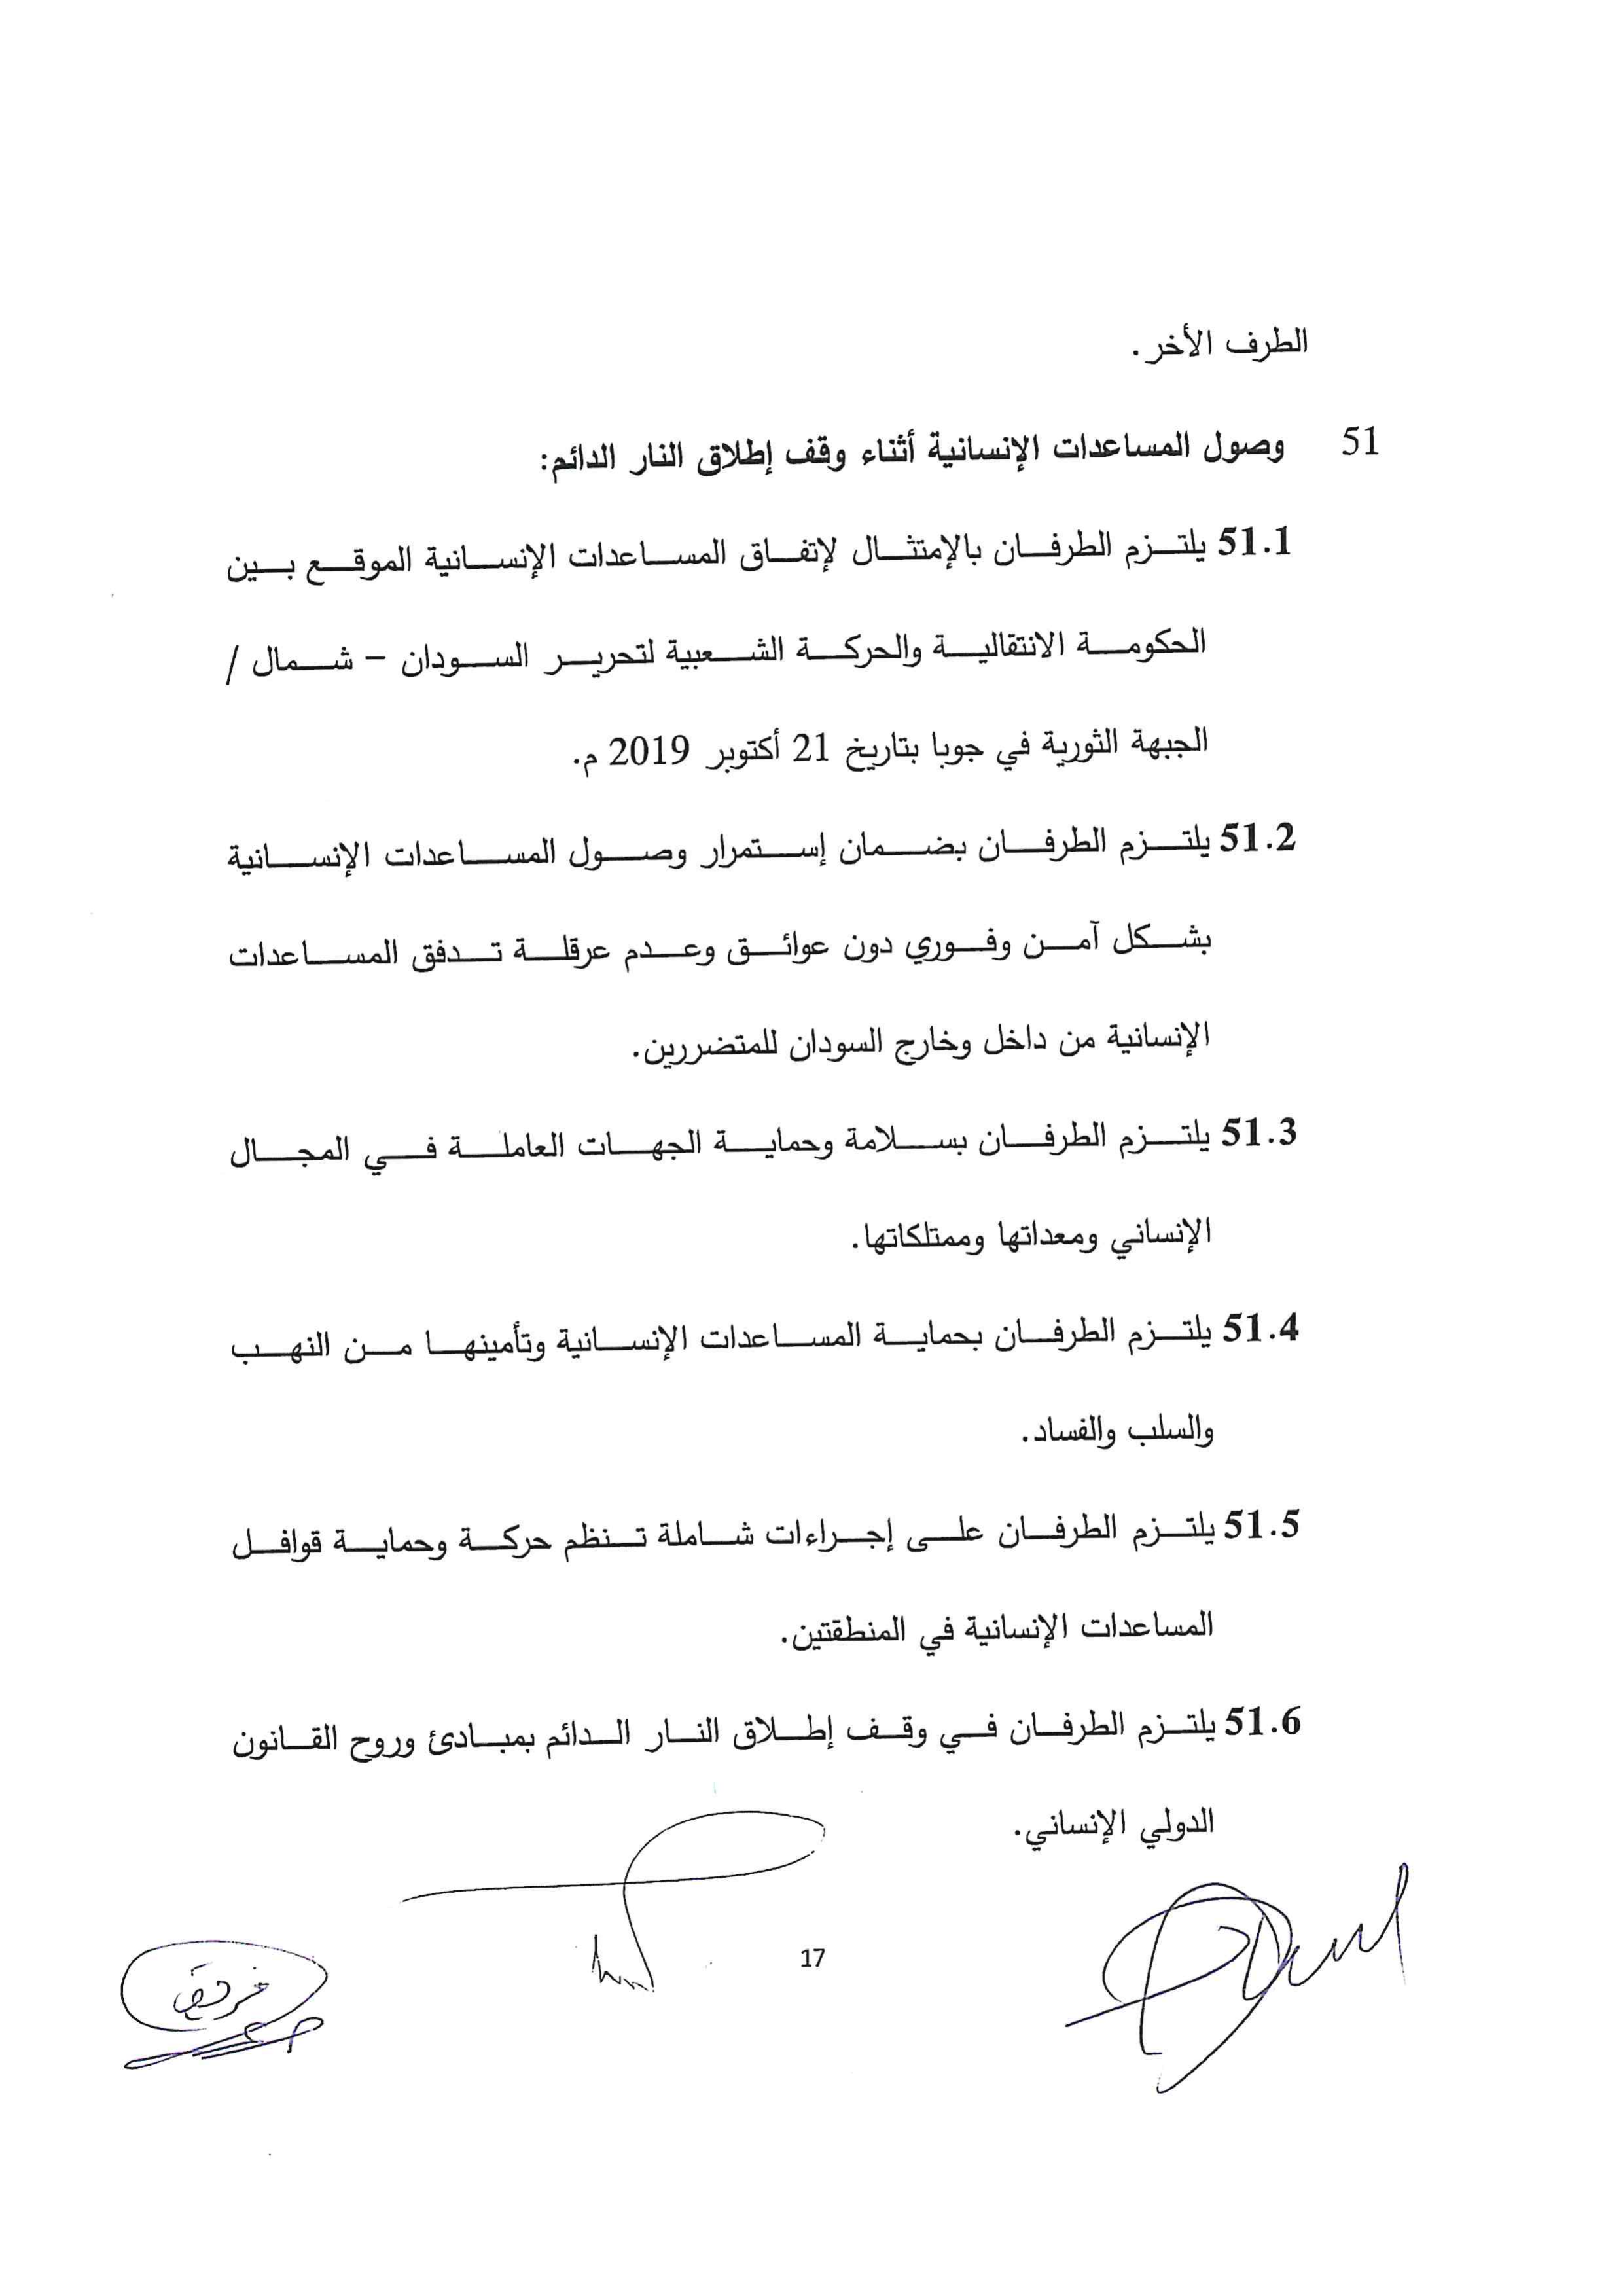 الطرف الأخر.
51 وصول المساعدات الإنسانية أثناء وقف إطلاق النار الدائم:
51.1 يلتزم الطرفان بالإمتثال لإتفاق المساعدات الإنسانية الموقع بين
الحكومة الانتقالية والحركة الشعبية لتحرير السودان – شمال /
الجبهة الثورية في جوبا بتاريخ 21 أكتوبر 2019 م.
51.2 يلتزم الطرفان بضمان إستمرار وصول المساعدات الإنسانية
بشكل آمن وفوري دون عوائق وعدم عرقلة تدفق المساعدات
الإنسانية من داخل وخارج السودان للمتضررين.
51.3 يلتزم الطرفان بسلامة وحماية الجهات العاملة في المجال
الإنساني ومعداتها وممتلكاتها.
51.4 يلتزم الطرفان بحماية المساعدات الإنسانية وتأمينها من النهب
والسلب والفساد.
51.5 يلتزم الطرفان على إجراءات شاملة تنظم حركة وحماية قوافل
المساعدات الإنسانية في المنطقتين.
51.6 يلتزم الطرفان في وقف إطلاق النار الدائم بمبادئ وروح القانون
الدولي الإنساني.
17